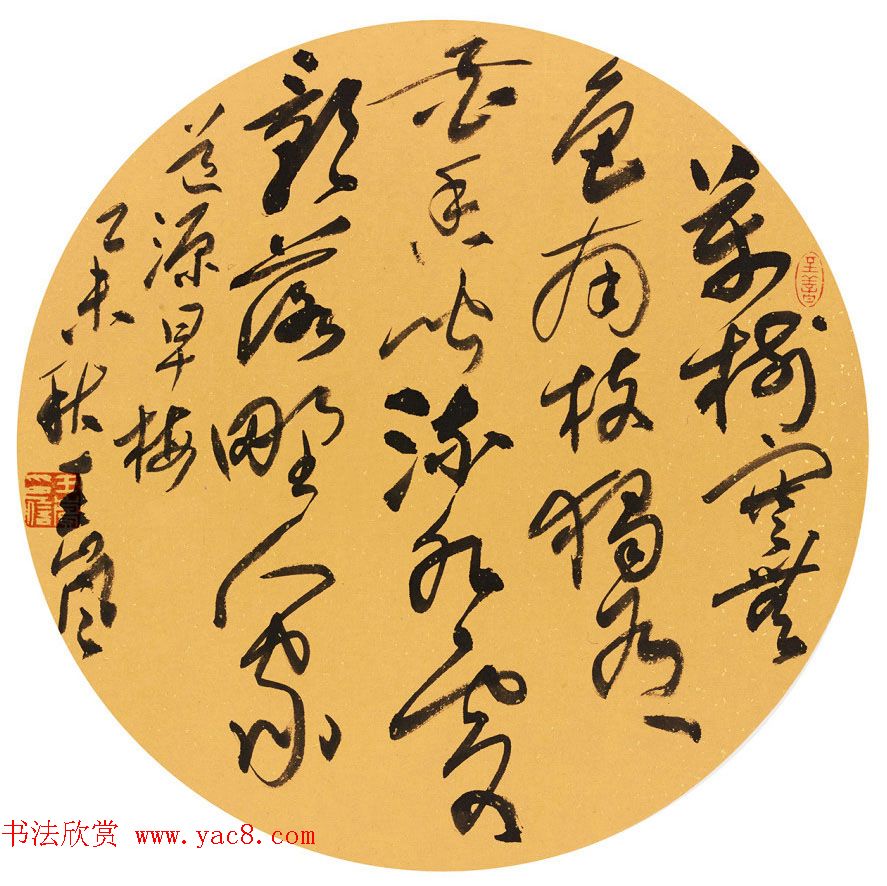 萬樹寒無
色南枝獨有
花香聞流水處
影落野人家
道源早梅
乙未秋王
书法欣赏 www.yac8.com